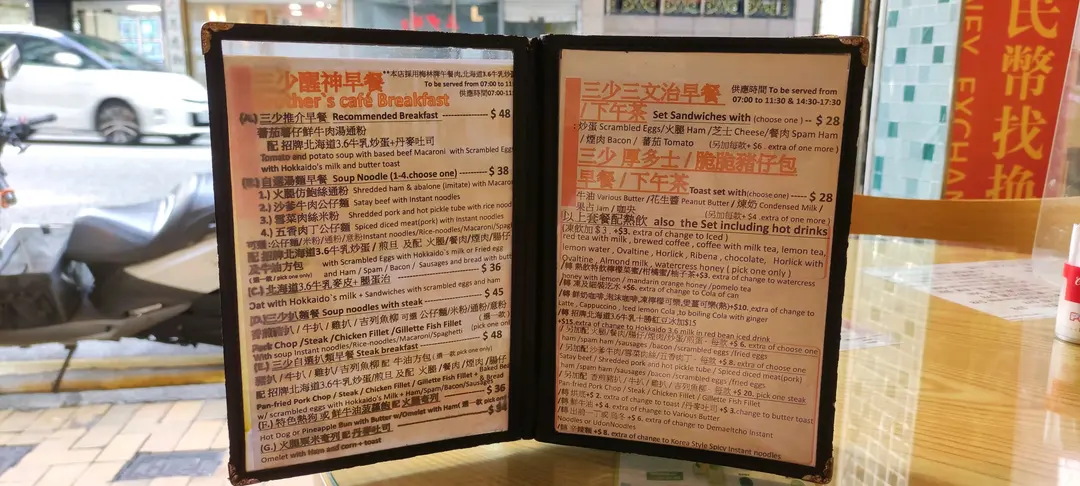 三少醒神早餐
**本店採用梅林牌午餐肉,北海道3.6牛乳炒
To be served from
供應時間07:00-11
other's café Breakfast
(A.) 三少推介早餐 Recommended Breakfast ---- $ 48
蕃茄薯仔鮮牛肉湯通粉
配 招牌北海道3.6牛乳炒蛋+丹麥吐司
Tomato and potato soup with based beef Macaroni with Scrambled Eggs
with Hokkaido's milk and butter toast
自選湯麵早餐 Soup Noodle (1-4.choose one) ---- $ 38
1.) 火腿仿鮑絲通粉 Shredded ham & abalone (imitate) with Macaroni
2.) 沙爹牛肉公仔麵 Satay beef with Instant noodles
3.) 雪菜肉絲米粉 Shredded pork and hot pickle tube with rice noodle
4.) 五香肉丁公仔麵 Spiced diced meat(pork) with Instant noodles
可選:公仔麵/米粉/通粉/意粉Instant noodles/Rice-noodles/Macaroni/Spaghetti
配 招牌北海道3.6牛乳炒蛋 / 煎旦 及配 火腿/餐肉/煙肉/腸仔
及牛油方包 with Scrambled Eggs with Hokkaido's milk or Fried egg
(選一款/pick one only) and Ham / Spam / Bacon / Sausages and bread with butter
(C.) 北海道3.6牛乳麥皮+腿蛋治 ---- $ 36
Oat with Hokkaido's milk + Sandwiches with scrambled egg and ham
三少扒麵餐 Soup noodles with steak ---- $ 45
香煎豬扒 / 牛扒 / 雞扒 / 吉列魚柳 可選 公仔麵/米粉/通粉/意粉
Pork Chop /Steak / Chicken Fillet /Gillette Fish Fillet (選一款)
With soup Instant noodles/Rice-noodles/Macaroni/Spaghetti (pick one only)
(E.) 三少自選扒類早餐 Steak breakfast ---- $ 48
豬扒 / 牛扒 / 雞扒 / 吉列魚柳 配 牛油方包 (選一款 pick one only)
配 招牌北海道3.6牛乳炒蛋/煎旦 及配 火腿/餐肉/煙肉/腸仔
Pan-fried Pork Chop / Steak / Chicken Fillet / Gillette Fish Fillet + & Bread
w/ scrambled eggs with Hokkaido's Milk + Ham/Spam/Bacon/Sausages
(F.) 特色熱狗 或 鮮牛油菠蘿飽 配 火腿奄列 ---- $ 36
Hot Dog or Pineapple Bun with Butter w/Omelet with Ham
(G.) 火腿粟米奄列 配 丹麥吐司 ---- $ 34
Omelet with Ham and corn + toast
三少三文治早餐
/ 下午茶
供應時間 To be served from
07:00 to 11:30 & 14:30-17:30
Set Sandwiches with (choose one ) -- $ 28
: 炒蛋 Scrambled Eggs/火腿 Ham /芝士 Cheese/餐肉 Spam Ham
/ 煙肉 Bacon / 蕃茄 Tomato (另加每款+ $6 . extra of one more )
三少 厚多士 / 脆脆豬仔包
早餐 / 下午茶
Toast set with(choose one) ----- $ 28
牛油 Various Butter /花生醬 Peanut Butter / 煉奶 Condensed Milk /
果占 Jam / 咖央 (另加每款+ $4 .extra of one more )
以上套餐配熱飲 also the Set including hot drinks
(凍飲加 $ 3 . +$3. extra of change to Iced )
red tea with milk , brewed coffee , coffee with milk tea, lemon tea,
lemon water , Ovaltine , Horlick , Ribena , chocolate, Horlick with
Ovaltine , Almond milk , watercress honey ( pick one only )
/轉 熱飲特飲檸檬菜蜜/柑橘蜜/柚子茶+$3. extra of change to watercress
honey with lemon / mandarin orange honey /pomelo tea
/轉 凍及細裝汔水 +$6. extra of change to Cola of can
/轉 鮮奶咖啡,泡沫咖啡,凍檸檬可樂,煲薑可樂(熱)+$10. extra of change to
Latte , Cappuccino , Iced lemon Cola ,to boiling Cola with ginger
/轉 招牌北海道3.6牛乳十勝紅豆冰加$15
+$15.extra of change to Hokkaido 3.6 milk in red bean iced drink
/ 另加配 火腿/餐肉/腸仔/煙肉/炒蛋/煎蛋 - 每款 +$ 6. extra of choose one
ham /spam ham/ sausages /bacon / scrambled eggs /fried eggs
/ 另加配 沙爹牛肉/雪菜肉絲/五香肉丁 - 每款 +$ 8. extra of choose one
Satay beef / Shredded pork and hot pickle tube / Spiced diced meat(pork)
/ 另加配 香煎豬扒 / 牛扒 / 雞扒 / 吉列魚柳 每款 +$ 20. pick one steak
Pan-fried Pork Chop / Steak / Chicken Fillet / Gillette Fish Fillet
/轉 烘底 +$ 2. extra of change to toast / 丹麥吐司 +$ 3.change to butter toast
/轉 鮮牛油 +$ 4. extra of change to Various Butter
/轉 出前一丁或 烏冬 +$ 6. extra of change to Demae-Itcho Instant
Noodles or UdonNoodles
+$ 8. extra of change to Korea Style Spicy Instant noodles
民幣找換
NEY EXCHAN